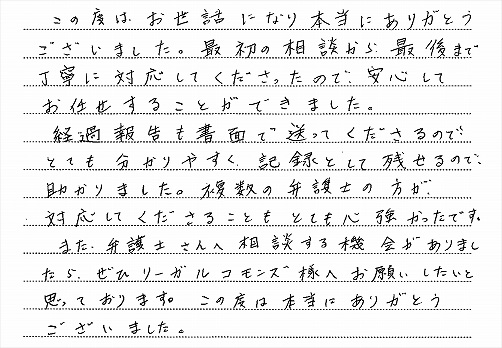 この度は、お世話になり本当にありがとう
ございました。最初の相談から、最後まで
丁寧に対応してくださったので、安心して
お任せすることができました。
経過報告も書面で送ってくださるので
とても分かりやすく、記録として残せるので、
助かりました。複数の弁護士の方が、
対応してくださることもとても心強かったです。
また、弁護士さんへ相談する機会がありまし
たら、ぜひリーガルコモンズ様へお願いしたいと
思っております。この度は本当にありがとう
ございました。